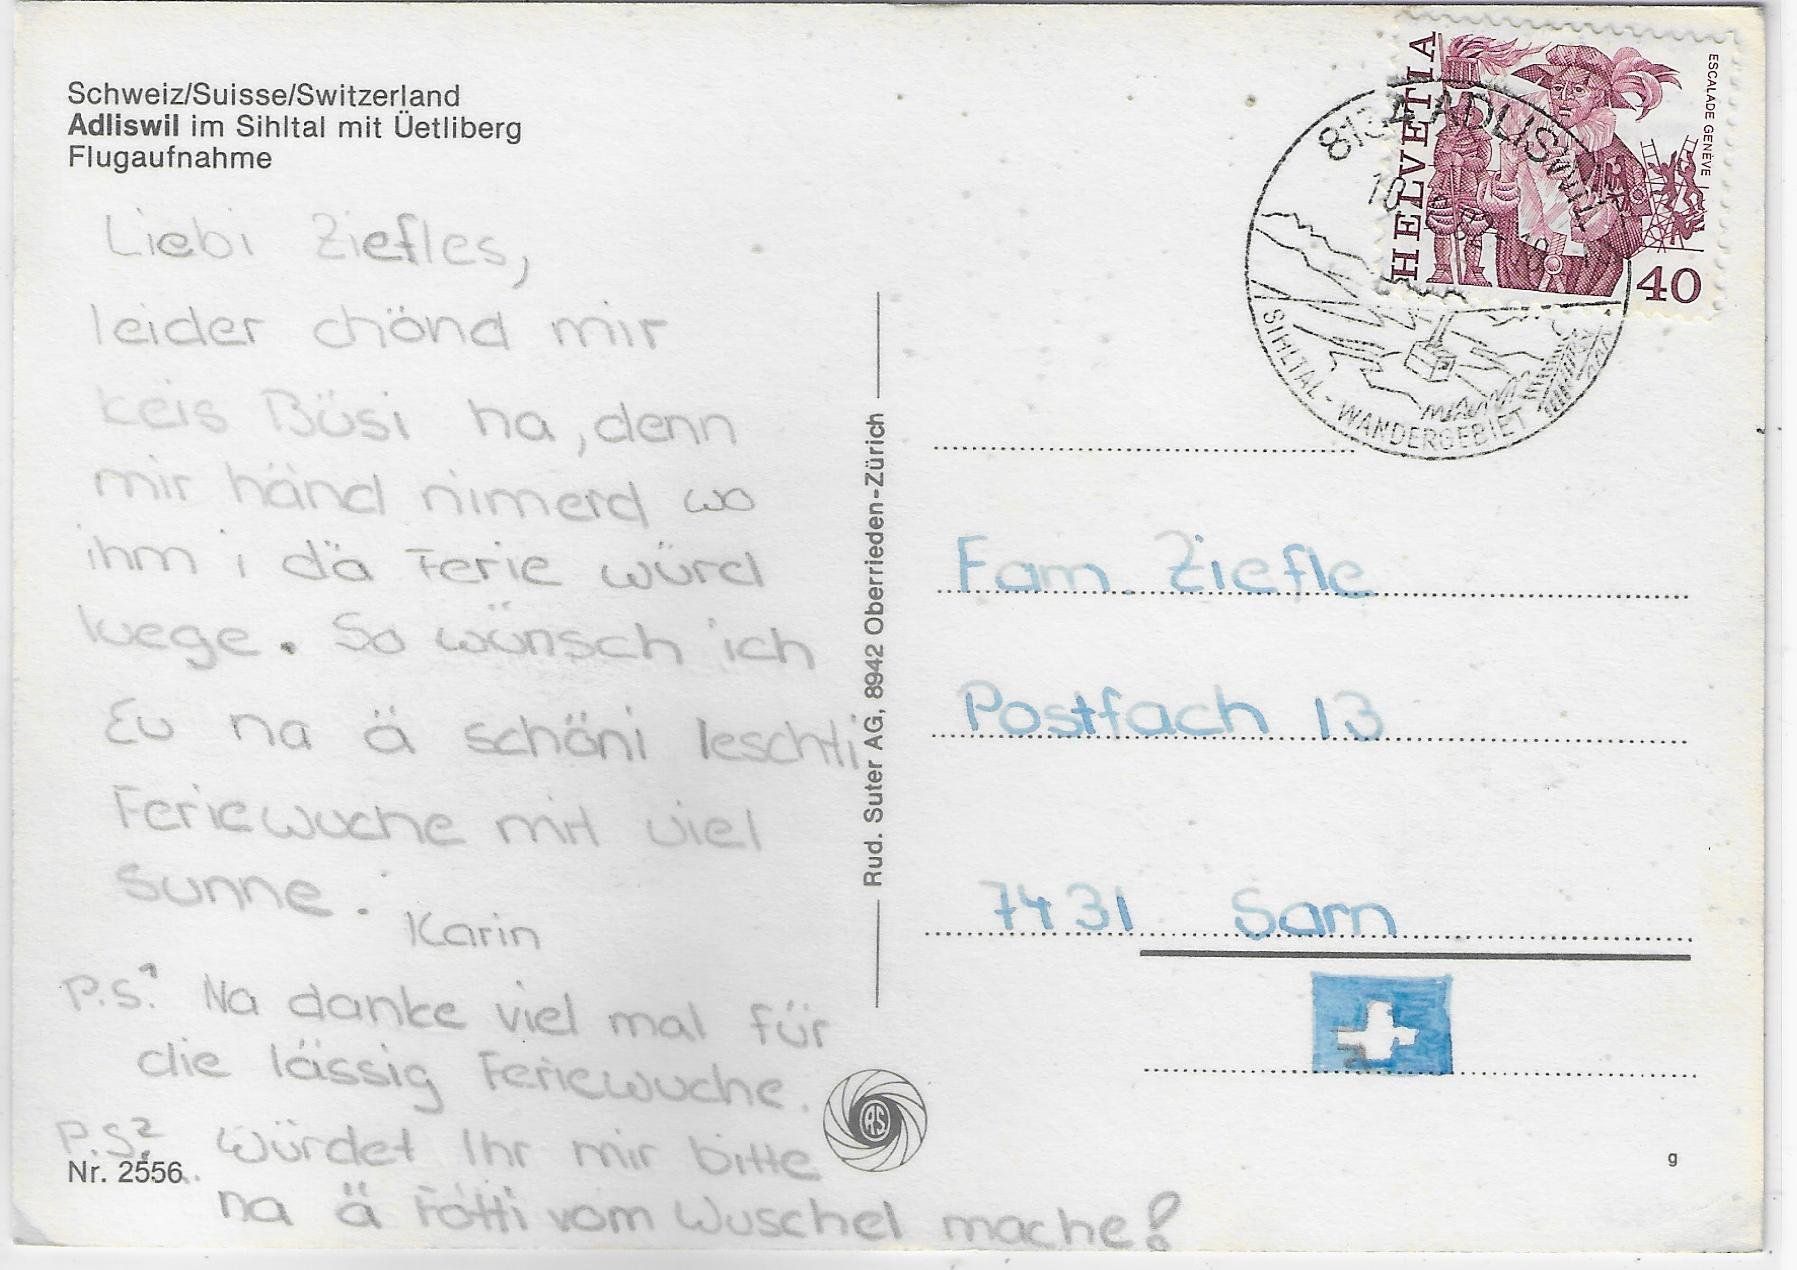 Schweiz/Suisse/Switzerland
Adliswil im Sihltal mit Üetliberg
Flugaufnahme
Liebi Ziefles,
leider chönd mir
keis Büsi ha, denn
mir händ nimerd wo
ihm i dä Ferie würd
luege. So wünsch ich
Eu na ä schöni leschti
Feriewuche mit viel
Sunne.
Karin
P.S.1 Na danke viel mal für
die lässig Feriewuche.
P.S.2 würdet Ihr mir bitte
na ä Fötti vom Wuschel mache!
Nr. 2556
Rud. Suter AG, 8942 Oberrieden-Zürich
RS
HELVETIA
ESCALADE GENÈVE
40
8134 ADLISWIL
10
SIHLTAL - WANDERGEBIET
Fam. Ziefle
Postfach 13
7431 Sarn
g